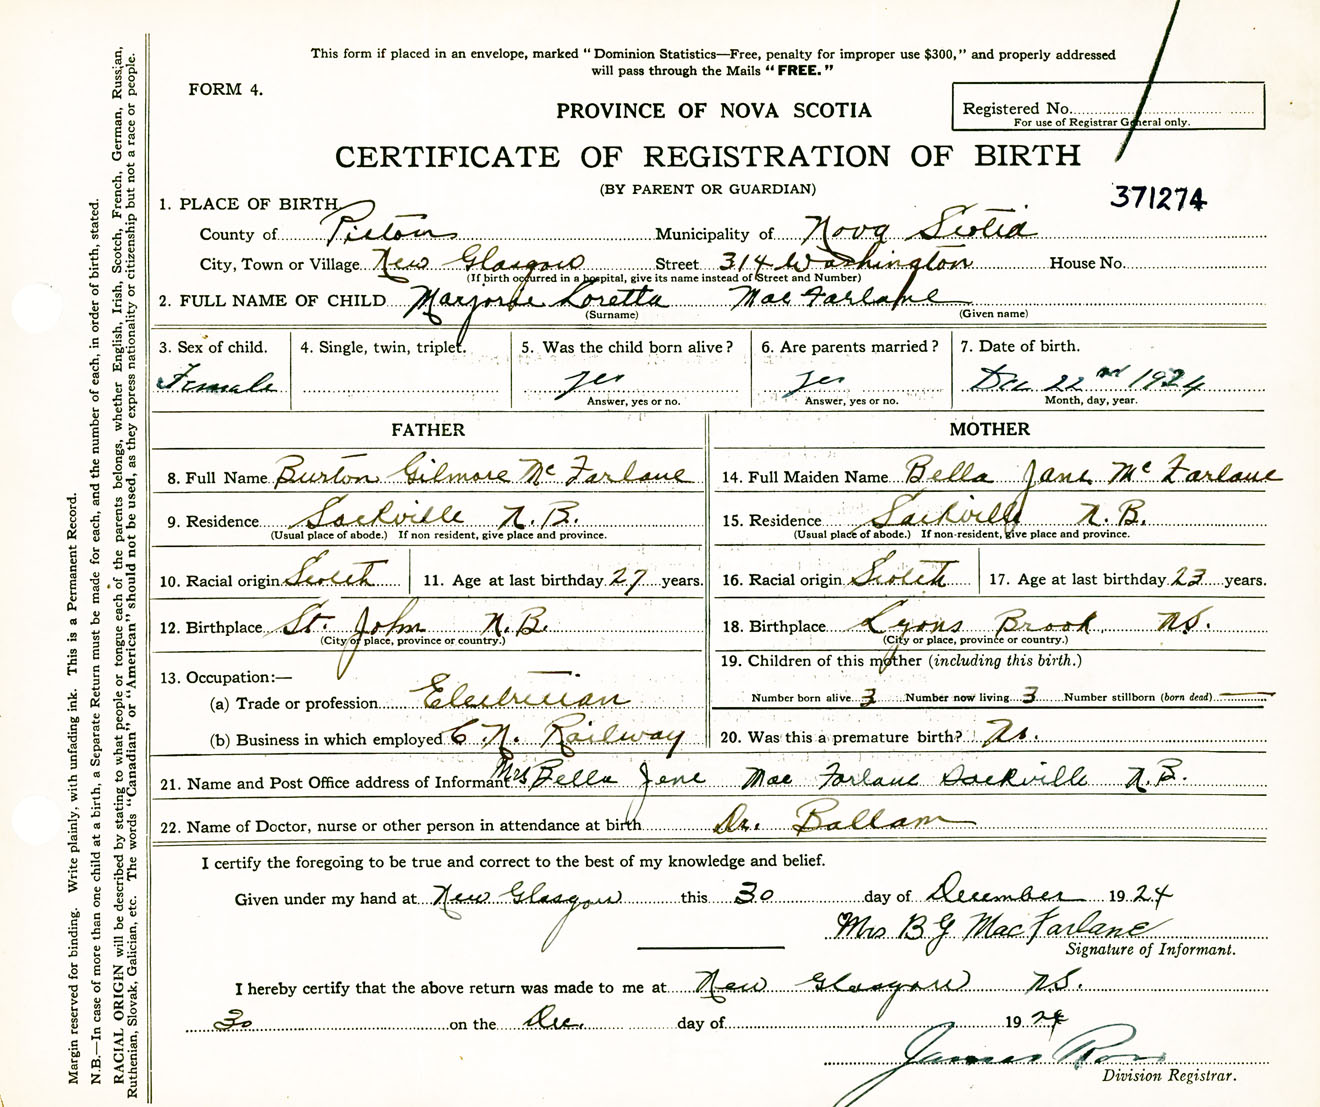 This form if placed in an envelope, marked "Dominion Statistics—Free, penalty for improper use $300," and properly addressed
will pass through the Mails "FREE."
FORM 4.
PROVINCE OF NOVA SCOTIA
Registered No.
For use of Registrar General only.
CERTIFICATE OF REGISTRATION OF BIRTH
(BY PARENT OR GUARDIAN)
371274
1. PLACE OF BIRTH
County of Pictou Municipality of Nova Scotia
City, Town or Village New Glasgow Street 314 Washington House No.
(If birth occurred in a hospital, give its name instead of Street and Number)
2. FULL NAME OF CHILD Marjorie Loretta MacFarlane
(Surname) (Given name)
3. Sex of child. 4. Single, twin, triplet. 5. Was the child born alive? 6. Are parents married? 7. Date of birth.
Female yes yes Dec 22nd 1924
Answer, yes or no. Answer, yes or no. Month, day, year.
FATHER MOTHER
8. Full Name Burton Gilmore McFarlane 14. Full Maiden Name Bella Jane McFarlane
9. Residence Sackville N.B. 15. Residence Sackville N.B.
(Usual place of abode.) If non resident, give place and province. (Usual place of abode.) If non-resident, give place and province.
10. Racial origin Scotch 11. Age at last birthday 27 years. 16. Racial origin Scotch 17. Age at last birthday 23 years.
12. Birthplace St. John N.B. 18. Birthplace Lyons Brook, N.S.
(City or place, province or country.) (City or place, province or country.)
13. Occupation:— 19. Children of this mother (including this birth.)
(a) Trade or profession Electrician Number born alive 3 Number now living 3 Number stillborn (born dead) —
(b) Business in which employed C.N. Railway 20. Was this a premature birth? No.
21. Name and Post Office address of Informant Mrs Bella Jane MacFarlane Sackville N.B.
22. Name of Doctor, nurse or other person in attendance at birth Dr. Ballam
I certify the foregoing to be true and correct to the best of my knowledge and belief.
Given under my hand at New Glasgow this 30 day of December 1924
Mrs B G MacFarlane
Signature of Informant.
I hereby certify that the above return was made to me at New Glasgow N.S.
30 on the Dec. day of 1924
James Ross
Division Registrar.
Margin reserved for binding. Write plainly, with unfading ink. This is a Permanent Record.
N.B.—In case of more than one child at a birth, a Separate Return must be made for each, and the number of each, in order of birth, stated.
RACIAL ORIGIN will be described by stating to what people or tongue each of the parents belongs, whether English, Irish, Scotch, French, German, Russian,
Ruthenian, Slovak, Galician, etc. The words "Canadian" or "American" should not be used, as they express nationality or citizenship but not a race or people.